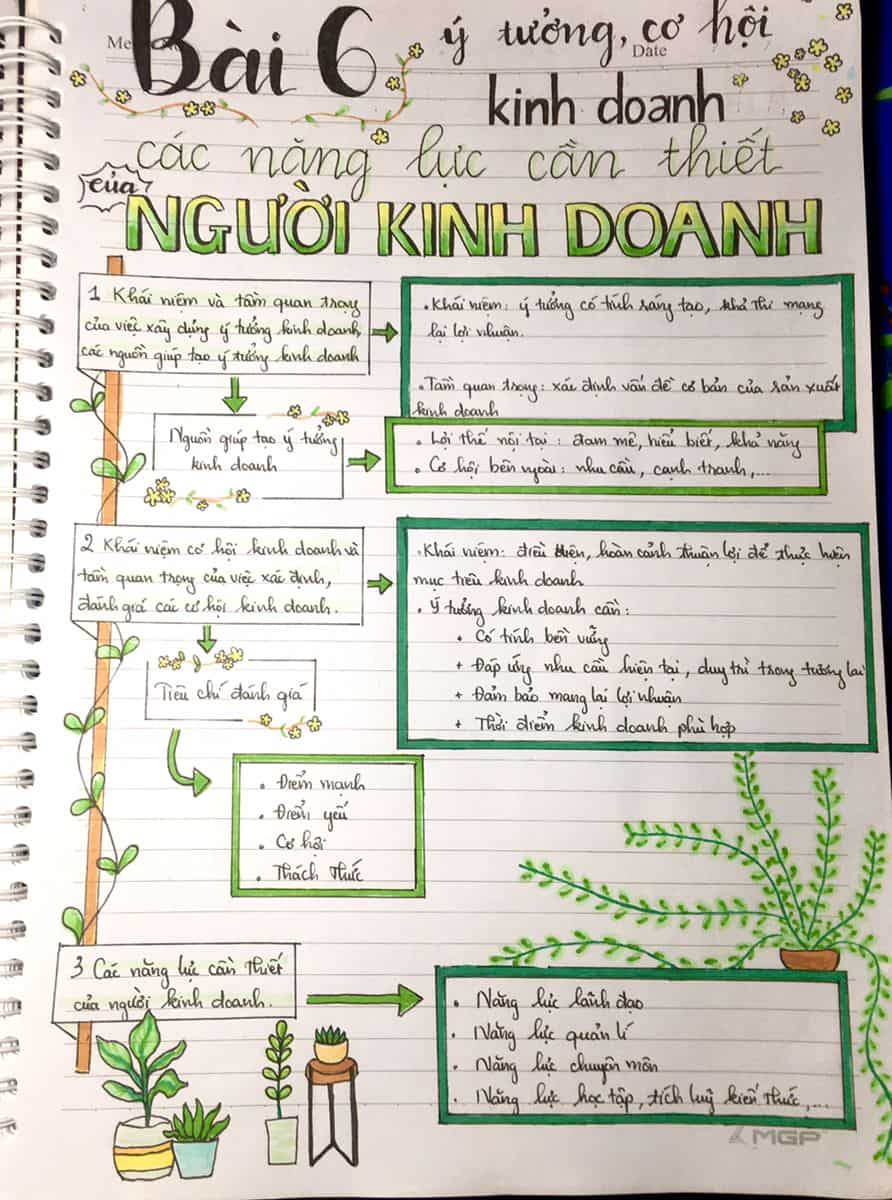 Bài 6 ý tưởng, cơ hội
Date
kinh doanh
các năng lực cần thiết
của
NGƯỜI KINH DOANH
1 Khái niệm và tầm quan trọng
của việc xây dựng ý tưởng kinh doanh,
các nguồn giúp tạo ý tưởng kinh doanh
• Khái niệm: ý tưởng có tính sáng tạo, khả thi mạng
lại lợi nhuận.
• Tầm quan trọng: xác định vấn đề cơ bản của sản xuất
kinh doanh
Nguồn giúp tạo ý tưởng
kinh doanh
• Lợi thế nội tại: đam mê, hiểu biết, khả năng
• Cơ hội bên ngoài: nhu cầu, cạnh tranh,...
2 Khái niệm cơ hội kinh doanh và
tầm quan trọng của việc xác định,
đánh giá các cơ hội kinh doanh.
• Khái niệm: điều kiện, hoàn cảnh thuận lợi để thực hiện
mục tiêu kinh doanh
• Ý tưởng kinh doanh cần:
• Có tính bền vững
+ Đáp ứng nhu cầu hiện tại, duy trì trong tương lai
+ Đảm bảo mang lại lợi nhuận
+ Thời điểm kinh doanh phù hợp
Tiêu chí đánh giá
• Điểm mạnh
• Điểm yếu
• Cơ hội
• Thách thức
3 Các năng lực cần thiết
của người kinh doanh.
• Năng lực lãnh đạo
• Năng lực quản lí
• Năng lực chuyên môn
• Năng lực học tập, tích luỹ kiến thức,...
MGP